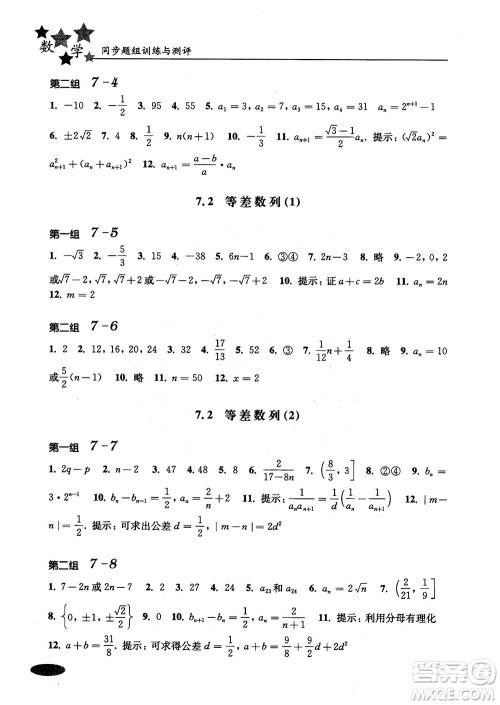 数学 同步题组训练与测评
第二组 7-4
1. -10 2. -1/2 3. 95 4. 55 5. a₁=3, a₂=7, a₃=15, a₄=31, aₙ=2ⁿ⁺¹-1
6. ±2√2 7. -4 8. 5 9. n(n+1)
aₙ₊₁²+aₙ+aₙ₊₁ 12. aₙ₊₁=(a-b)/a·aₙ
7.2 等差数列(1)
第一组 7-5
1. -√3 2. -5/3 3. 15 4. -38 5. 6n-1 6. ③④ 7. 2n-3 8. 略 9. √7+2, √7, √7-2
或√7-2, √7, √7+2 10. 提示:证a+c=2b 11. aₙ=2n
12. m=2
第二组 7-6
1. 2 2. 15, 10, 20 3. 24 4. 17/13 5. 20 6. ③ 7. 1/12 n+1/4 8. 略
或5/2(n-1) 10. 略 11. n=50 12. x=2
7.2 等差数列(2)
第一组 7-7
1. 2q-p 2. -n 3. 27 4. 48 5. 27 6. 2/(17-8n) 7. (8/3, 3] 8. 15 9. bₙ=
3·2ⁿ⁻¹ 10. bₙ-bₙ₋₁=1/2 11. 提示:1/(aₙaₙ₊₁)=1/d(1/aₙ-1/aₙ₊₁) 12. |m-
n|=1/2. 提示:可求出公差d=1/2, |m-n|=2d²
第二组 7-8
1. 7-2n或2n-7 2. 24 3. 0 4. 5 5. a₂₃和a₂₄ 6. aₙ=2√n
8. {0, ±1, ±√2/2} 9. 0 10. bₙ₊₁-bₙ=1/2 11. 提示:利用分母有理化
12. a+b=31/8. 提示:可求得公差d=1/2, a+b=9/8+9/2d+2d²
答案圈
MXQE.COM